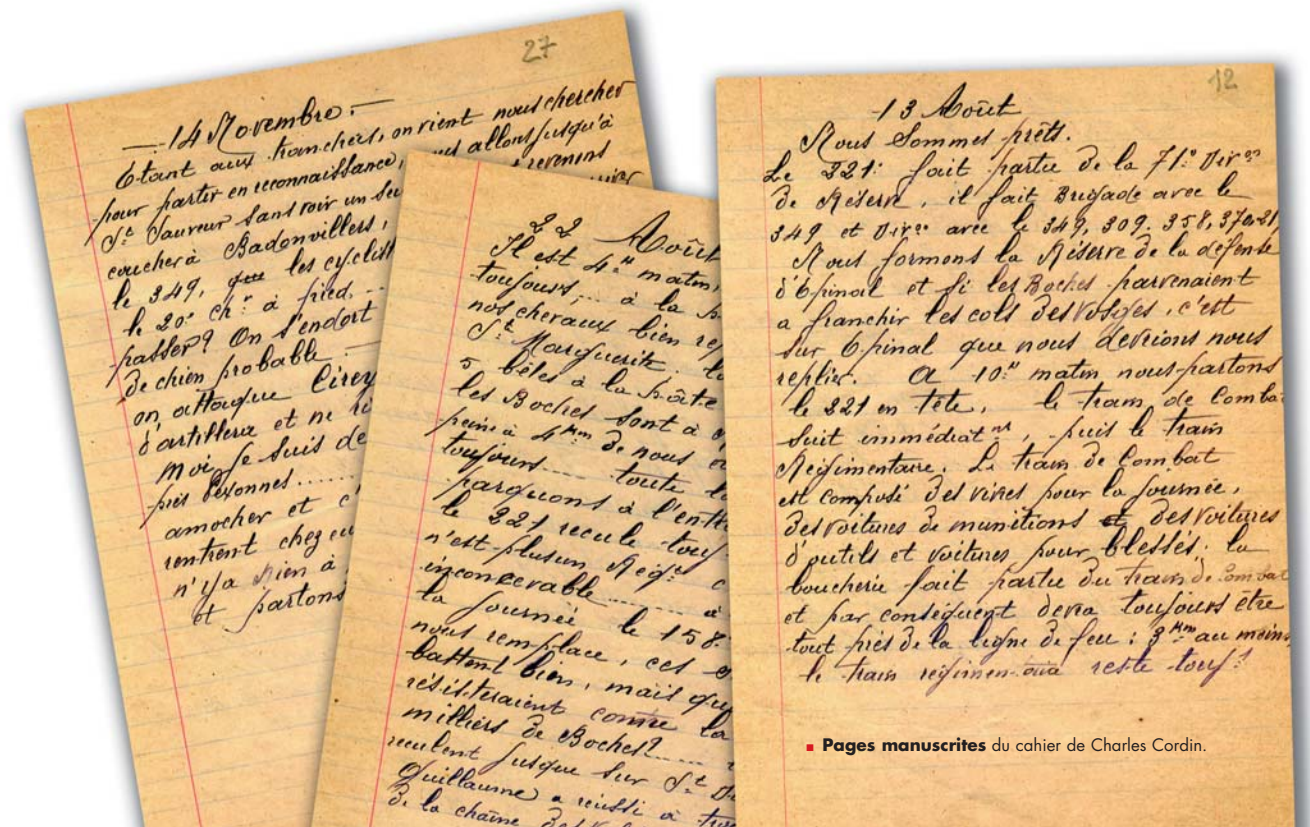 27
14 Novembre.
Etant aux tranchées, on vient nous chercher
pour partir en reconnaissance, nous allons jusqu'à
St Sauveur sans voir un seu
revenons
coucher à Badonvillers,
le 349, que les cyclist
le 20e ch. à pied...
passer? On s'endort
de chien probable.
on attaque Cirey
d'artillerie et ne
Moi je suis de
près
amocher et c
rentrent chez eu
n'y a rien à
et partons
22 Août
Il est 4h matin,
toujours... à la
nos chevaux bien
Ste Marguerite.
5 bêtes à la
les Boches sont à
peine à 4km de nous
toujours.... toute
parquons à l'ent
le 221 recule touj
n'est plus un Régt c
inconcevable..... à
la journée le 158e
nous remplace, ces
battent bien, mais que
résisteraient contre la
milliers de Boches?....
reculent jusque sur St Di
Guillaume a réussi à
de la chaîne des
12
13 Août
Nous Sommes prêts.
Le 221e fait partie de la 71e Divon
de Réserve, il fait Brigade avec le
349 et Divon avec le 349, 309, 358, 370,
Nous formons la Réserve de la défense
d'Epinal et si les Boches parvenaient
a franchir les cols des Vosges, c'est
sur Epinal que nous devrions nous
replier. A 10h matin nous partons
le 221 en tête, le train de Comba
suit immédiatnt, puis le train
Régimentaire. Le train de Combat
est composé des vivres pour la journée,
des voitures de munitions et des voitures
d'outils et voitures pour blessés; la
boucherie fait partie du train de Combat
et par conséquent devra toujours être
tout près de la ligne de feu: 3km au moins,
le train régimentaire reste touj.
Pages manuscrites du cahier de Charles Cordin.